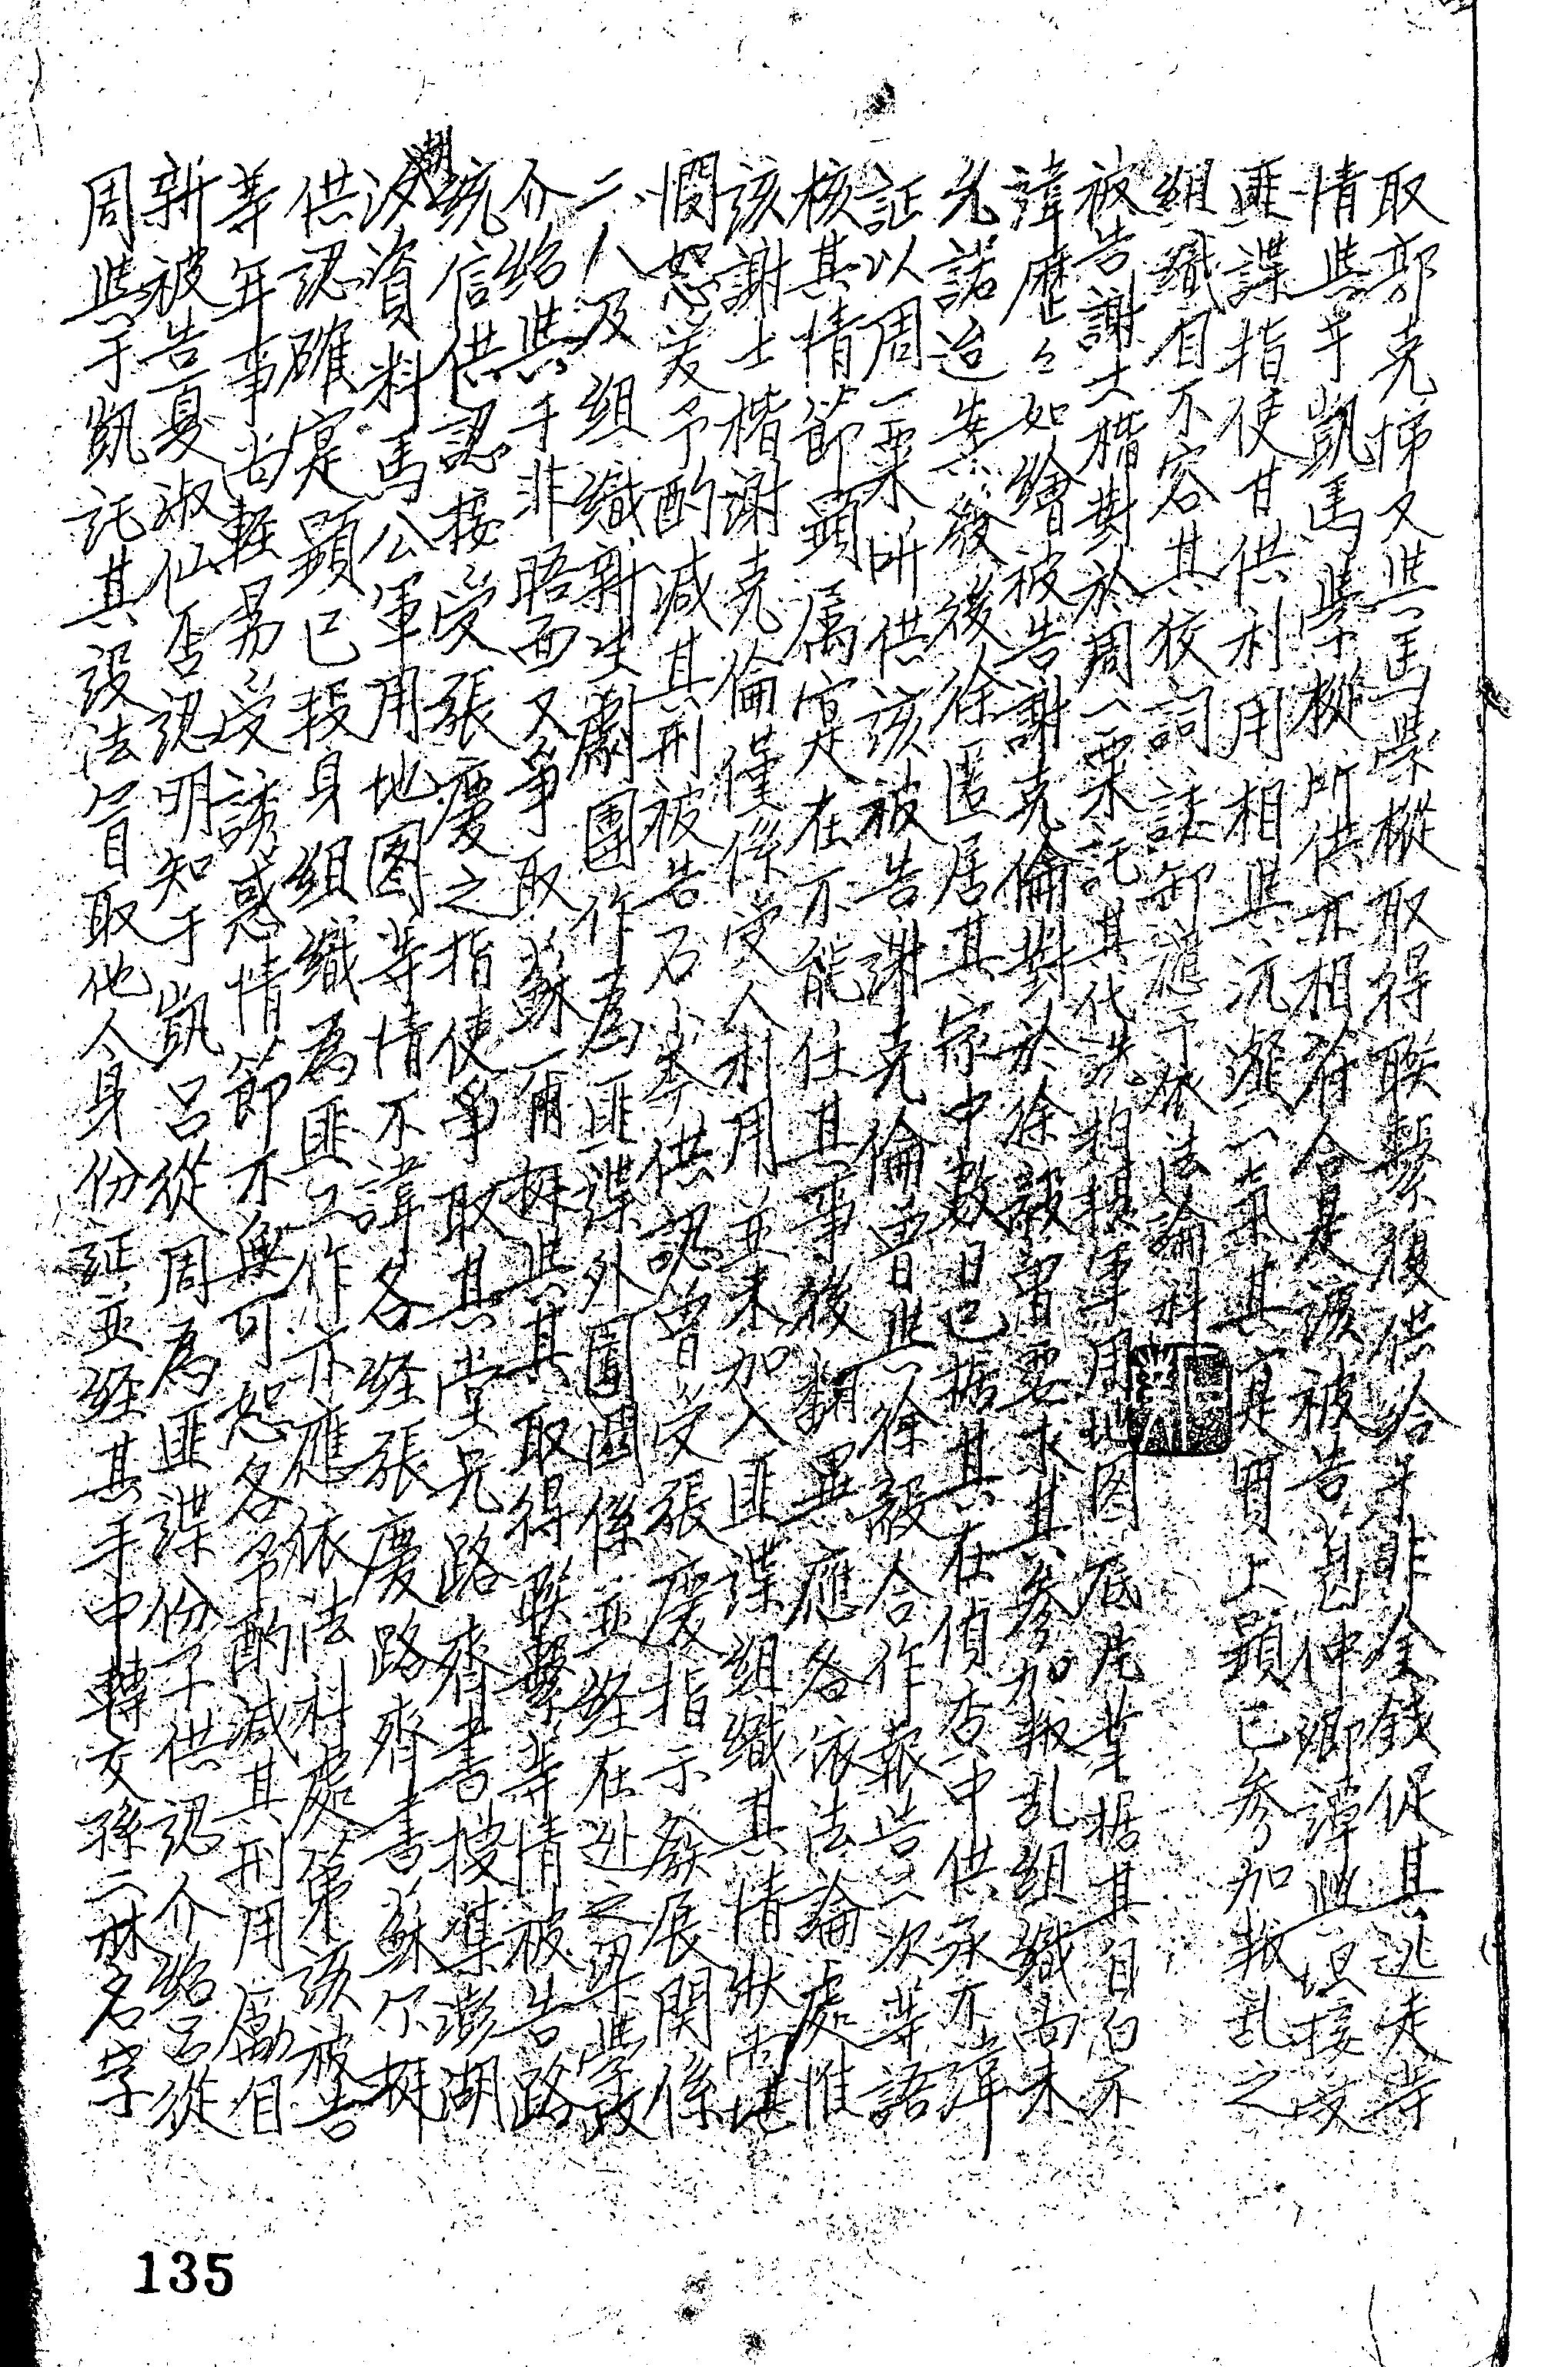 取郭克悌又與馬崇樅取得聯繫後供給于非金錢促其逃走等
情與于凱馬崇樅所供亦相符合是該被告甚仲卿譚與一旦接受
匪諜指使甘供利用相與沆瀣一氣其实實上顯已参加叛乱之
組織自不容其狡詞諉卸應予依法論科
被告謝士楷對於周一粟託其代洗相摸軍用地図底片業据其自白不
諱歷々如繪被告謝克倫對於徐毅曾要求其参加叛乱組織尚未
允諾迨生發後徐匿居其家中数日已据其在偵查中供承不諱
証以周一粟所供該被告謝克倫曾與徐毅合作報告一次等語
核其情節顯属寔在不能任其事後翻異應各依法論處惟
該謝士楷謝克倫僅係受人利用並未加入匪諜組織其情狀尚堪
憫恕爰予酌减其刑被告石 供認曾受張慶指示發展関係
二人及組織新生劇團作為匪諜外圍関係並經在逃之梁學政
介紹與于非晤面又爭取蘇爾挺與其取得联繫等情被告路
統信供認接受張慶之指使爭取其堂兄路齊書搜集澎湖
資料馬公軍用地図等情不諱各經張慶路齊書蘇尔挺
供認確寔顯已投身組織為匪工作亦應依法科處第該被告
等年事尚軽易受誘惑情節不無可恕各予酌减其刑用勵自
新被告夏淑仙否認明知于凱呂從周為匪諜份子供認介紹呂從
周與于凱託其設法冒取他人身份証並經其手中轉交孫一林名字
135